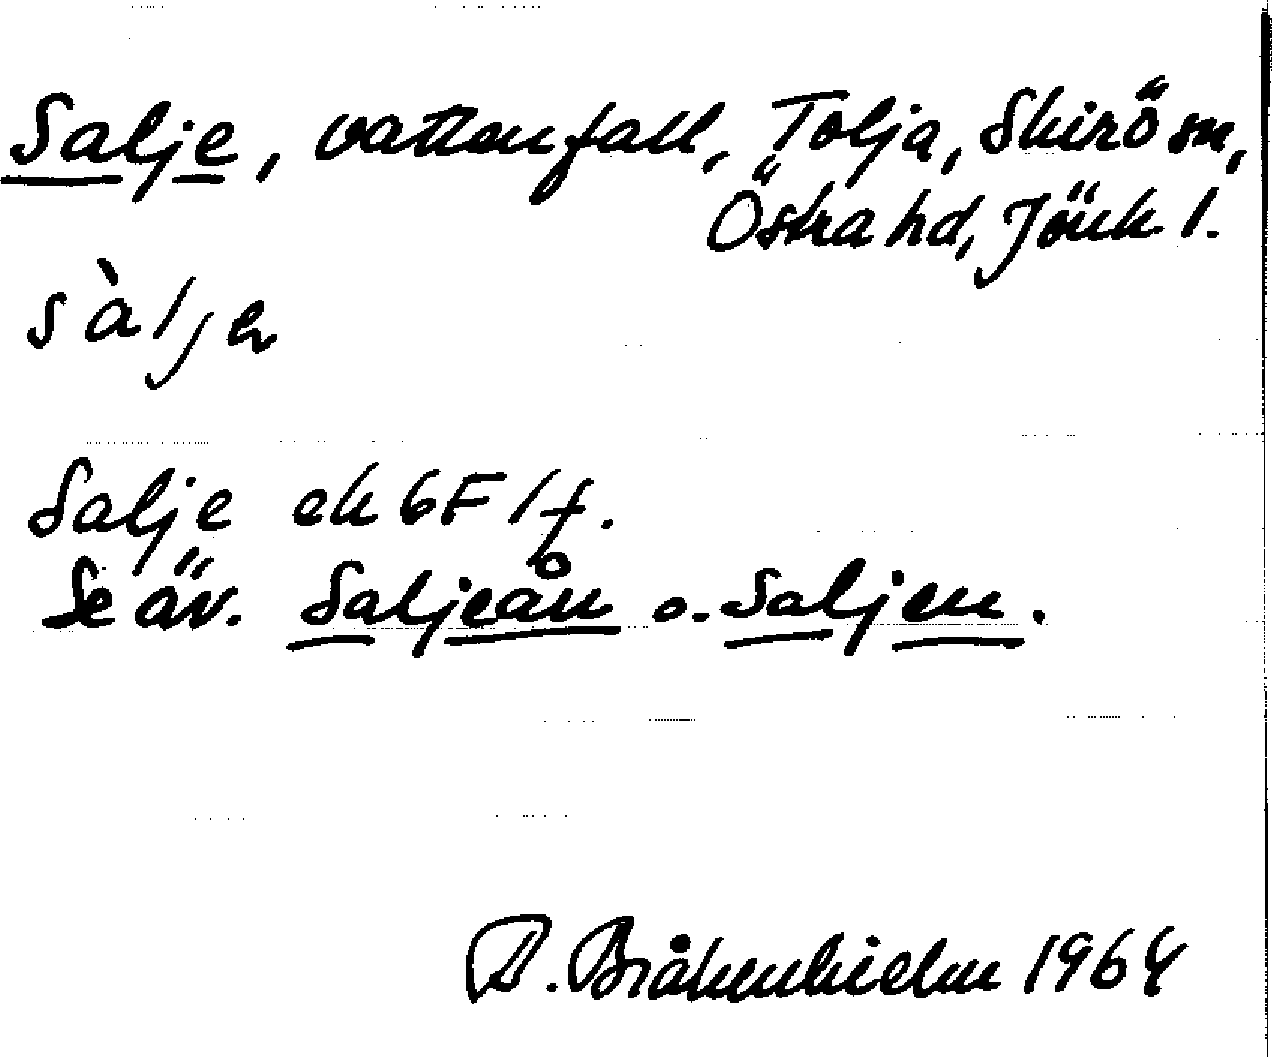 Salje, vattenfall, Tolja, Skirö sn,
Östra hd, Jönk l.
sàljə
Salje ek 6F 1f.
Se äv. Saljeån o. Saljen.
P. Bråkenhielm 1964